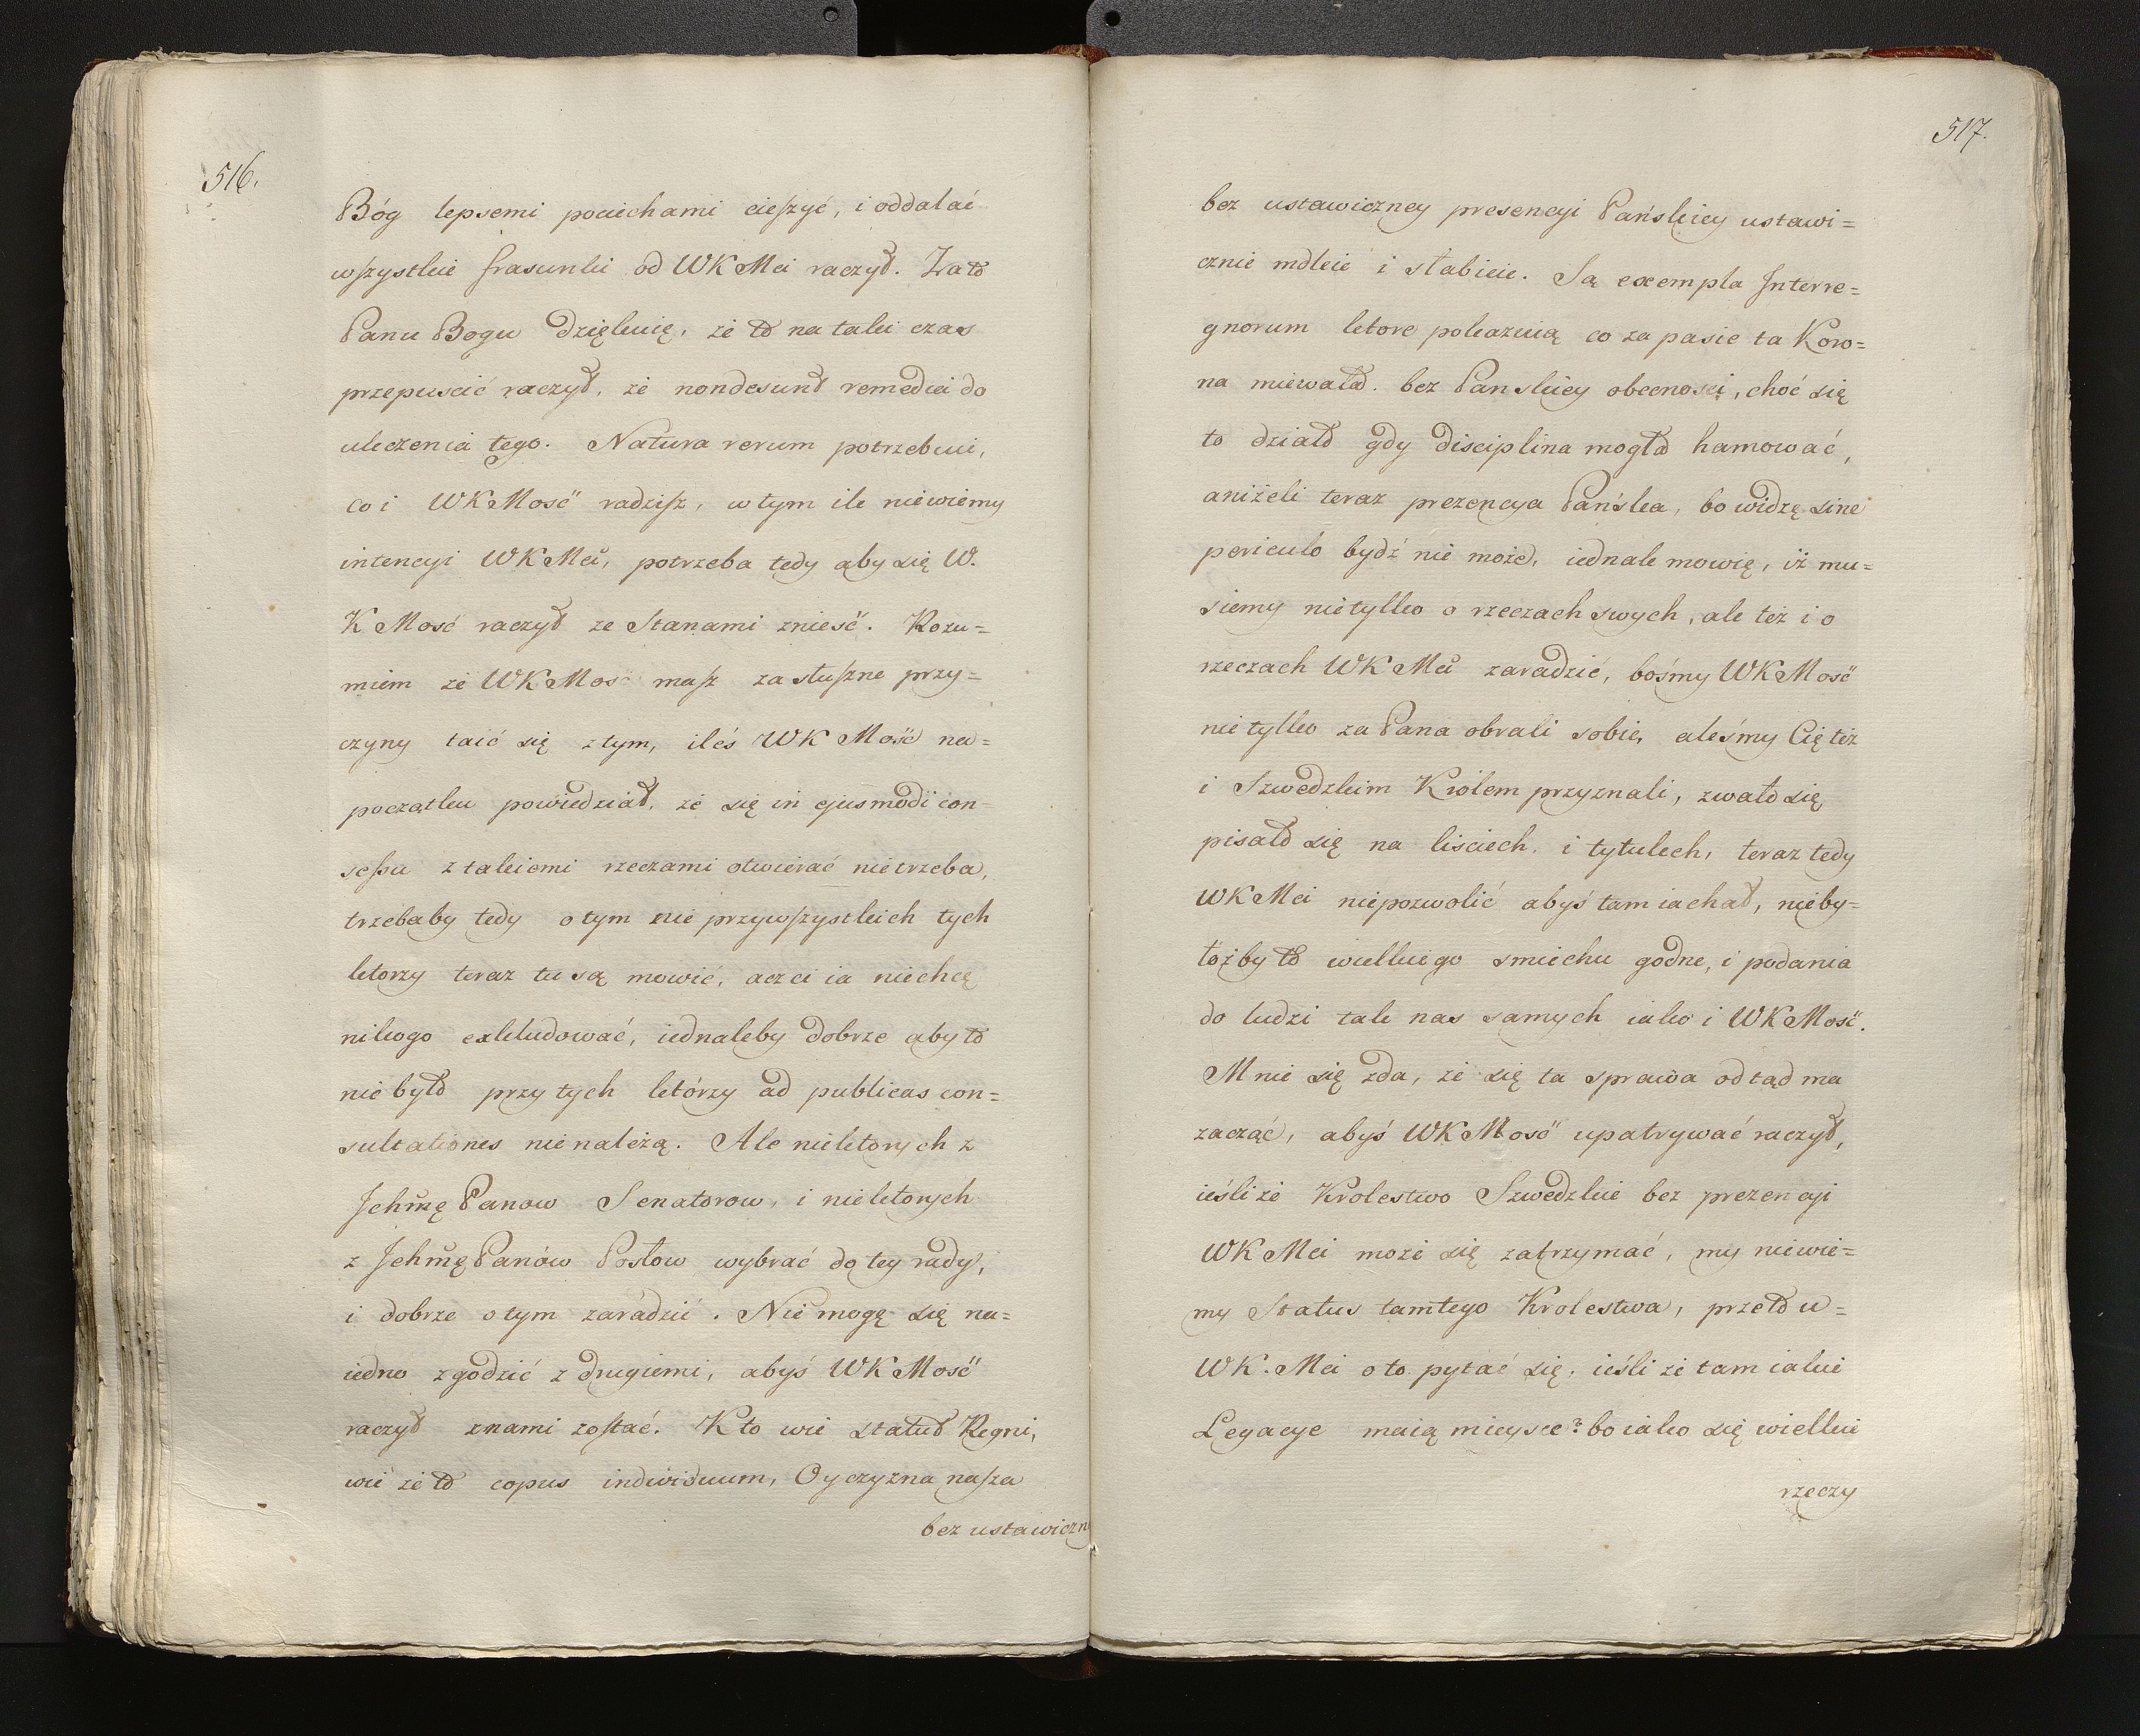 516.
Bóg lepsemi pociechami cieszyć, i oddalać
wszystkie frasunki od WKMci raczył. Zato
Panu Bogu dziękuię, że to na taki czas
przepuscić raczył, że nondesunt remedia do
uleczenia tego. Natura rerum potrzebuie,
co i WKMosć radzisz, w tym ile niewiemy
intencyi WKMci, potrzeba tedy aby się W.
KMosć raczył ze Stanami znieść. Rozu=
miem że WKMosć masz za słuszne przy=
czyny taić się z tym, ileś WK Mość na=
początku powiedział, że się in ejusmodi con=
sessu z takiemi rzeczami otwierać nietrzeba,
trzebaby tedy o tym nie przywszystkich tych
ktorzy teraz tu są mowić, acz ci ia niechcę
nikogo exkludować, iednakby dobrze aby to
nie było przy tych którzy ad publicas con=
sultationes nienależą. Ale niektorych z
Jchmę Panow Senatorow, i niektorych
z Jchmę Panów Posłow wybrać do tey rady,
i dobrze o tym zaradzić. Nie mogę się na=
iedno zgodzić z drugiemi, abyś WKMość
raczył znami zostać. Kto wie status Regni,
wie że to copus individuum, Oyczyzna nasza
bez ustawiczn
517.
bez ustawiczney presencyi Pańskiey ustawi=
cznie mdleie i słabieie. Są exempla Interre=
gnorum ktore pokazuią co za pasie ta Koro=
na miewała bez Panskiey obecnosci, choć się
to działo gdy disciplina mogła hamować,
aniżeli teraz prezencya Pańska, bo widzę sine
periculo bydź nie może, iednak mowię, iż mu=
siemy nietylko o rzeczach swych, ale też i o
rzeczach WKMci zaradzić, bośmy WKMosć
nietylko za Pana obrali sobie, aleśmy Cię też
i Szwedzkim Królem przyznali, zwało się
pisało się na lisciech, i tytulech, teraz tedy
WKMci niepozwolić abyś tam iachał, nieby=
łożby to wielkiego smiechu godne, i podania
do ludzi tak nas samych iako i WKMosć.
Mnie się zda, że się ta sprawa odtąd ma
zacząć, abyś WKMosć upatrywać raczył,
ieśliże Krolestwo Szwedzkie bez prezencyi
WKMci może się zatrzymać, my niewie=
my Status tamtego Krolestwa, przeto u=
WK. Mci o to pytać się, ieśli że tam iakie
Legacye maią mieysce? bo iako się wielkie
rzeczy